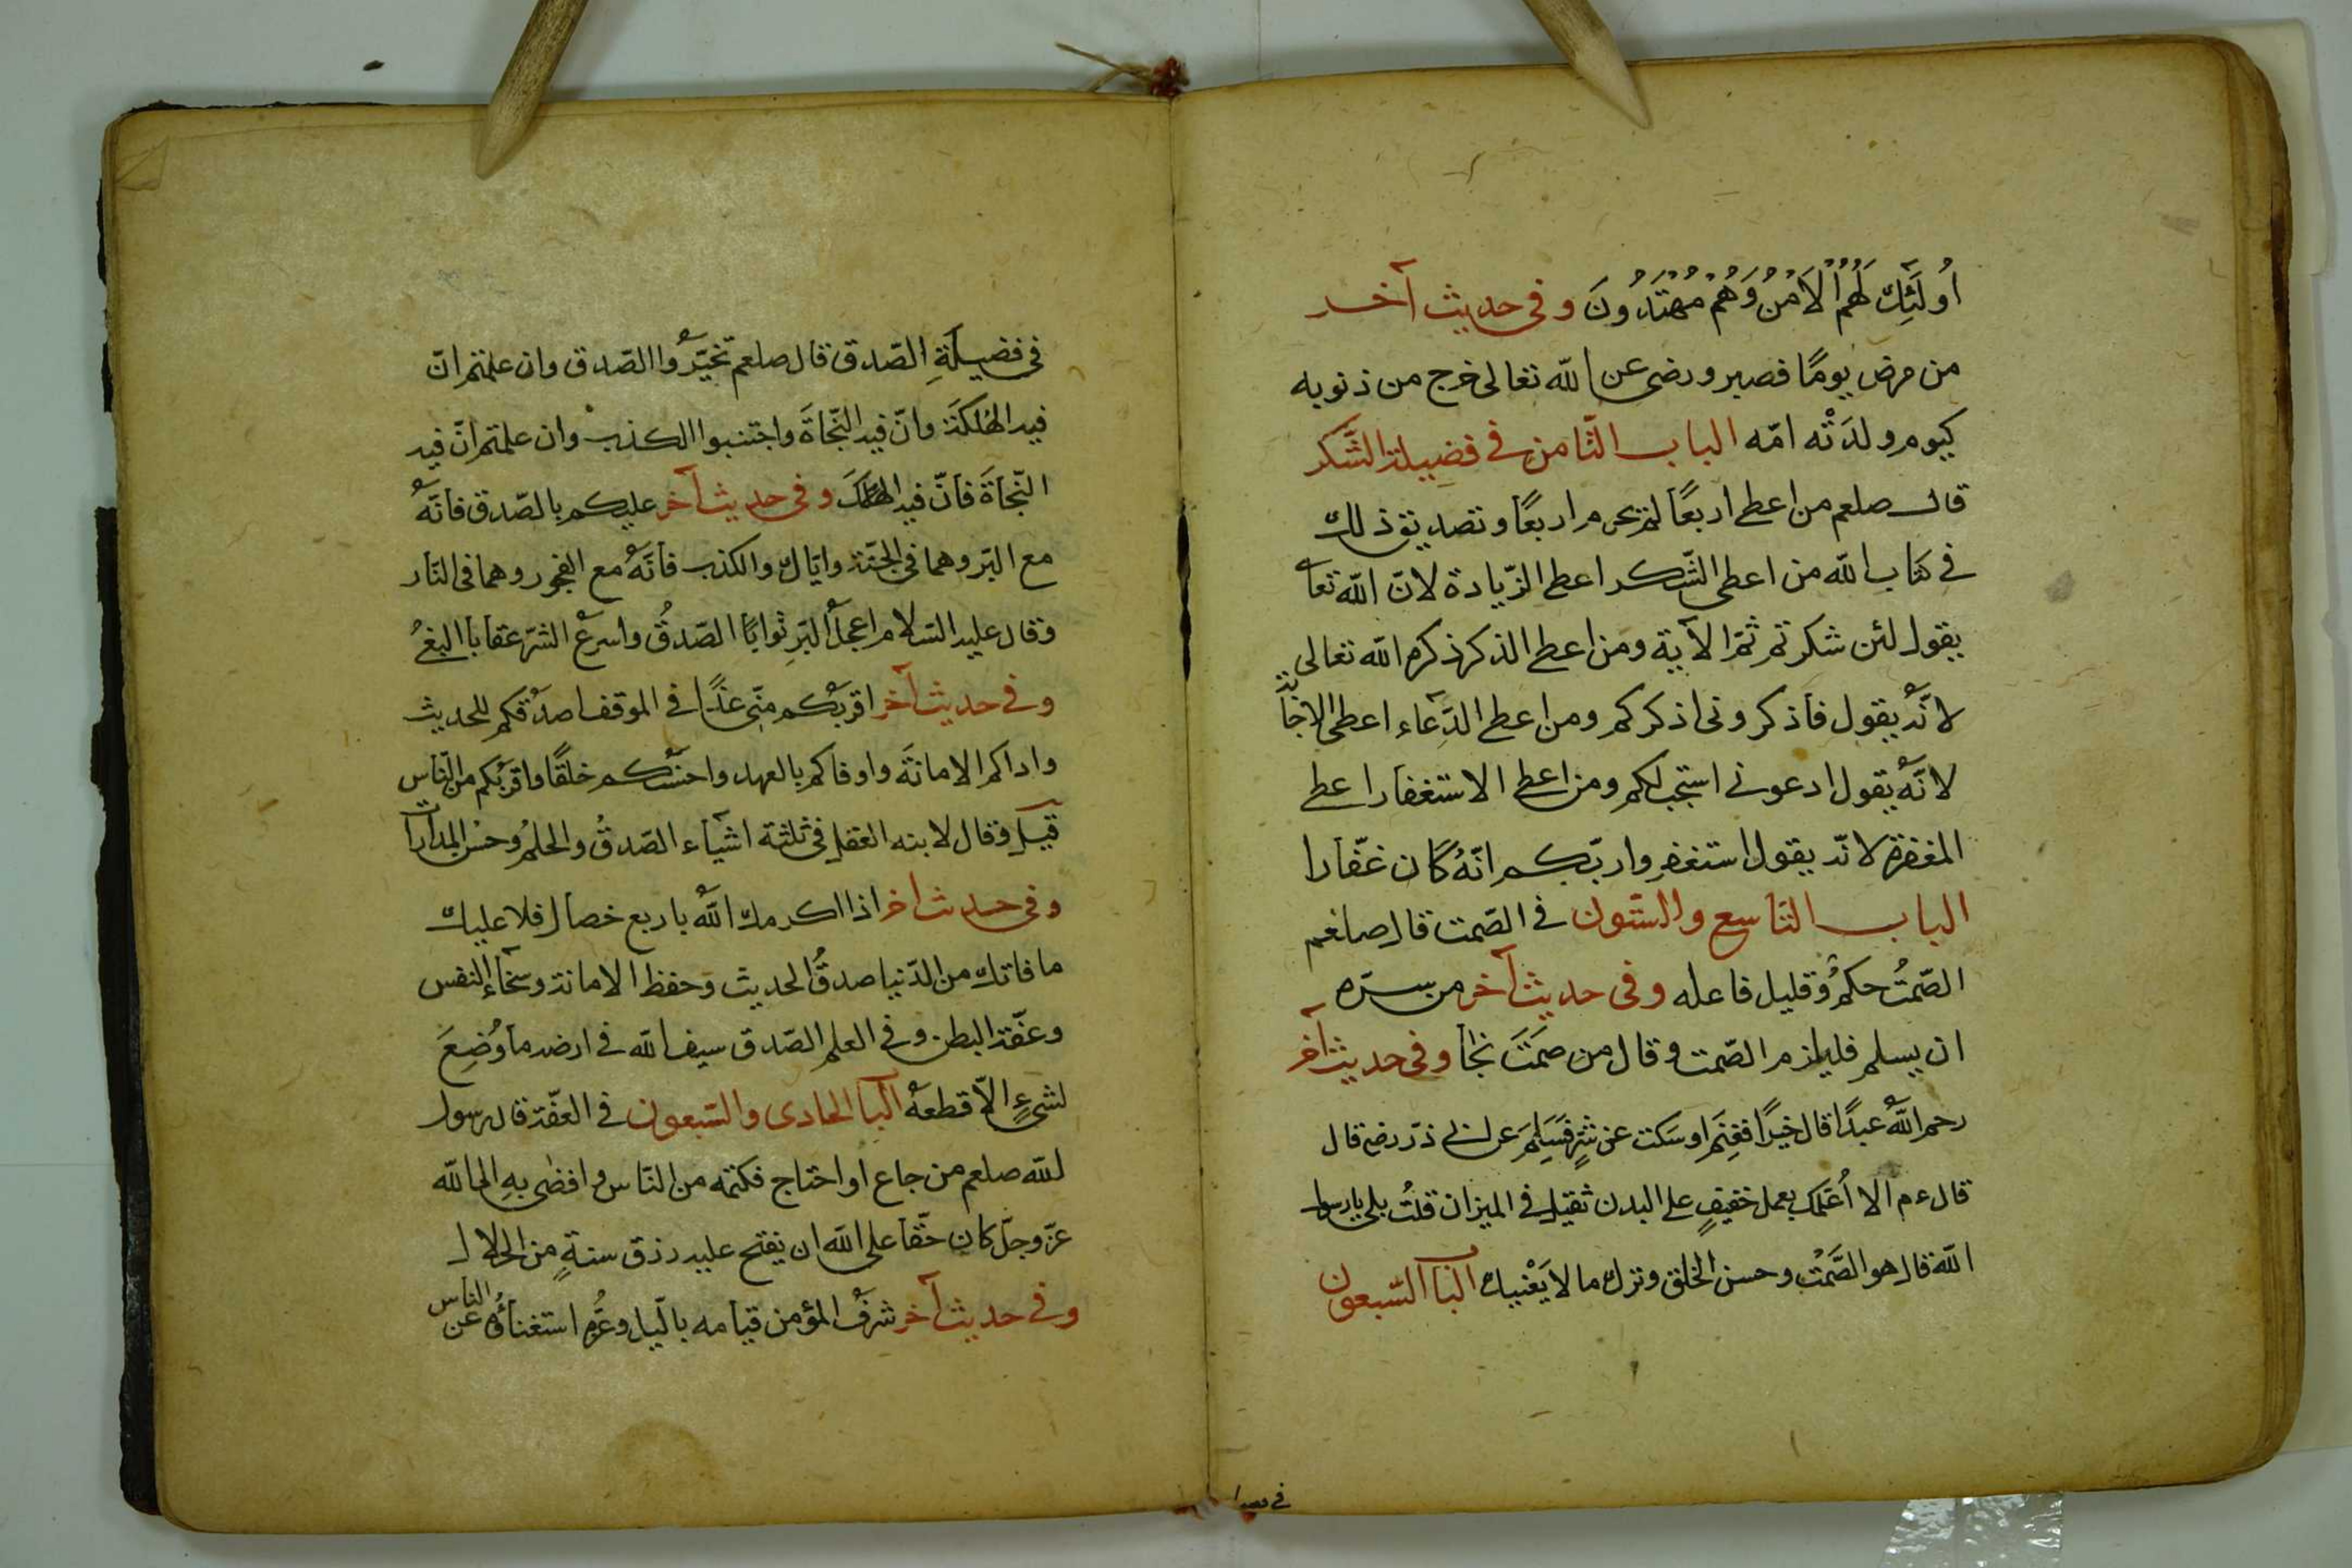 اُولَئِكَ لَهُمُ الْاَمْنُ وَهُمْ مُهْتَدُونَ وفى حديث آخر
من مرض يومًا فصبر ورضى عن الله تعالى خرج من ذنوبه
كيوم ولدَتْه امّه الباب الثّامن فى فضيلة الشّكر
قال صلعم من اعطى اربعًا لم يحرم اربعًا وتصديق ذلك
فى كتاب الله من اعطى الشّكر اعطى الزّيادة لانّ الله تعا
يقول لئن شكرتم ثمّ الآية ومن اعطى الذكر ذكره الله تعالى
لانّه يقول فاذكرونى اذكركم ومن اعطى الدّعاء اعطى الاجابة
لانّه يقول ادعونى استجب لكم ومن اعطى الاستغفار اعطى
المغفرة لانّه يقول استغفروا ربّكم انّهُ كان غفّارا
الباب التاسع والستّون فى الصّمت قال صلعم
الصّمتُ حكمٌ وقليل فاعله وفى حديث آخر من سرّه
ان يسلم فليلزم الصّمت وقال من صَمَتَ نجا وفى حديث آخر
رحم اللهُ عبدًا قال خيرًا فغنِم او سَكت عن شرٍّ فسَلِمَ عن ابى ذرّ رضى قال
قال ءم الا اُعَلّمك بعمل خفيفٍ على البدن ثقيل فى الميزان قلتُ بلى يا رسول
الله قال هو الصَّمْت وحسن الخلق وترك ما لا يَعْنيك البا السّبعون
فى فضيلةِ الصّدق قال صلعم تخيّرُوا الصّدق وان علمتم انّ
فيه الهَلكَة وانّ فيه النّجاةَ واجتنبوا الكذب وان علمتم انّ فيه
النّجاةَ فانّ فيه الهلكَ وفى حديث آخر عليكم بالصّدق فانّهُ
مع البّر وهما فى الجنّة وايّاك والكذب فانّهُ مع الفجور وهما فى النّار
وقال عليه السّلام اعجلُ البّرِ ثوابًا الصّدقُ واسرعُ الشرّ عقابا البغىُ
وفى حديث آخر اقربُكم منّى غدًا فى الموقف اصدقكم للحديث
واداكم الامانةَ واوفاكم بالعهد واحسنُكم خلقًا واقربُكم من النّاس
قيل وقال لابنه العقل فى ثلثة اشياء الصّدقُ والحلمُ وحسْن المداراة
وفى حديث اخر اذا اكرمك اللهُ باربع خصال فلا عليك
ما فاتك من الدّنيا صدقُ الحديث وحفظ الامانة وسخاء النفس
وعفّة البطن وفى العلم الصّدق سيف الله فى ارضه ما وُضِعَ
لشىءٍ الاّ قطعهُ البا الحادى والسّبعون فى العفّة قال رسول
لله صلعم من جاع او احتاج فكتمه من النّاس وافضٰى بهِ الى الله
عزّ وجلّ كان حقّا على الله ان يفتح عليه رزق سنةٍ من الحلال
وفى حديث آخر شرفُ المؤمن قيامه بالّيل وعزُّه استغناؤُه عن الناس